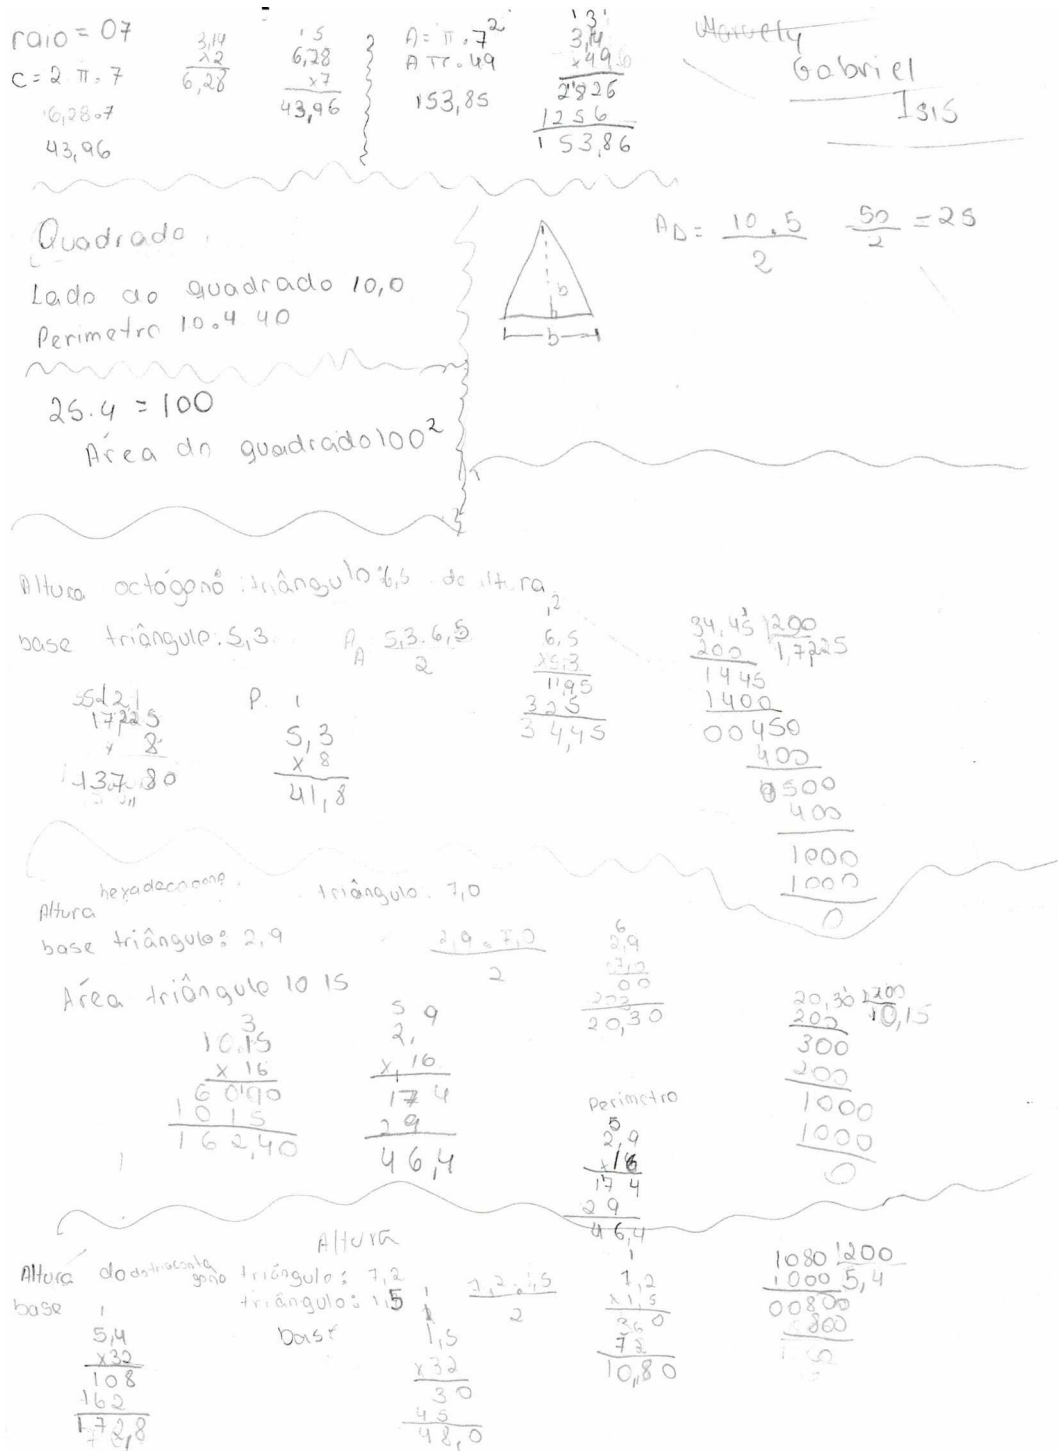 raio = 07
C = 2 π . 7
6,28 . 7
43,96
3,14
x2
6,28
15
6,28
x7
43,96
A = π . 7²
A π . 49
153,85
3
3,14
x49
2826
1256
153,86
Gabriel
Isis
Quadrado
Lado do quadrado 10,0
Perimetro 10.4 40
25.4 = 100
Área do quadrado 100²
b
b
A△ = 10 . 5
2
50
2
= 25
Altura octógono triângulo: 6,5 de altura
base triângulo: 5,3
5,3 . 6,5
2
,2
6,5
x5,3
1195
325
34,45
34,45 200
200 1,7225
1445
1400
00450
400
0500
400
1000
1000
0
17,225
x 8
137,80
P. 1
5,3
x 8
41,8
hexadecagono
Altura triângulo. 7,0
base triângulo: 2,9
2,9 . 7,0
2
6
2,9
7,0
00
203
20,30
20,30 200
200 10,15
300
200
1000
1000
0
Área triângulo 10 15
3
10.15
x 16
6090
1015
162,40
5 9
2,
x 16
174
29
46,4
Perimetro
5
2,9
x16
174
29
46,4
Altura
Altura do triângulo: 7,2
base triângulo: 1,5
base
7,2 . 1,5
2
1
5,4
x32
108
162
172,8
1
1,5
x32
30
45
48,0
1
7,2
x1,5
360
72
10,80
1080 200
1000 5,4
00800
800